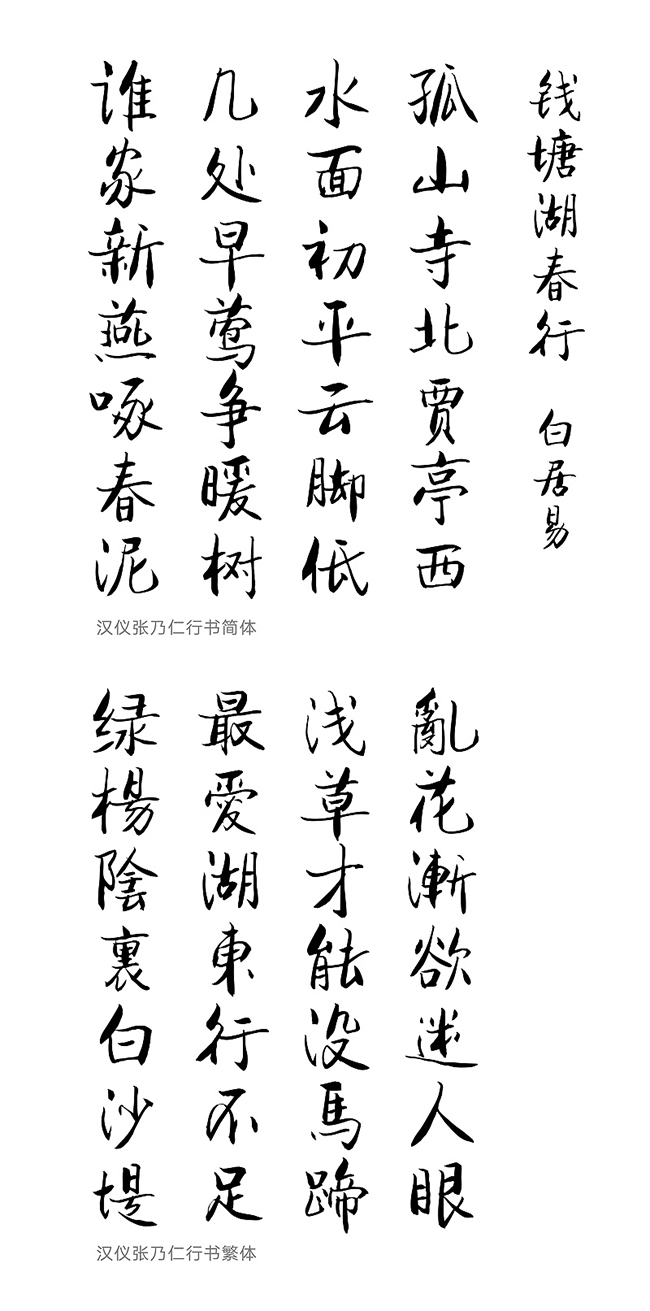 钱塘湖春行 白居易
孤山寺北贾亭西
水面初平云脚低
几处早莺争暖树
谁家新燕啄春泥
汉仪张乃仁行书简体
亂花漸欲迷人眼
浅草才能没馬蹄
最愛湖東行不足
绿楊陰裏白沙堤
汉仪张乃仁行书繁体